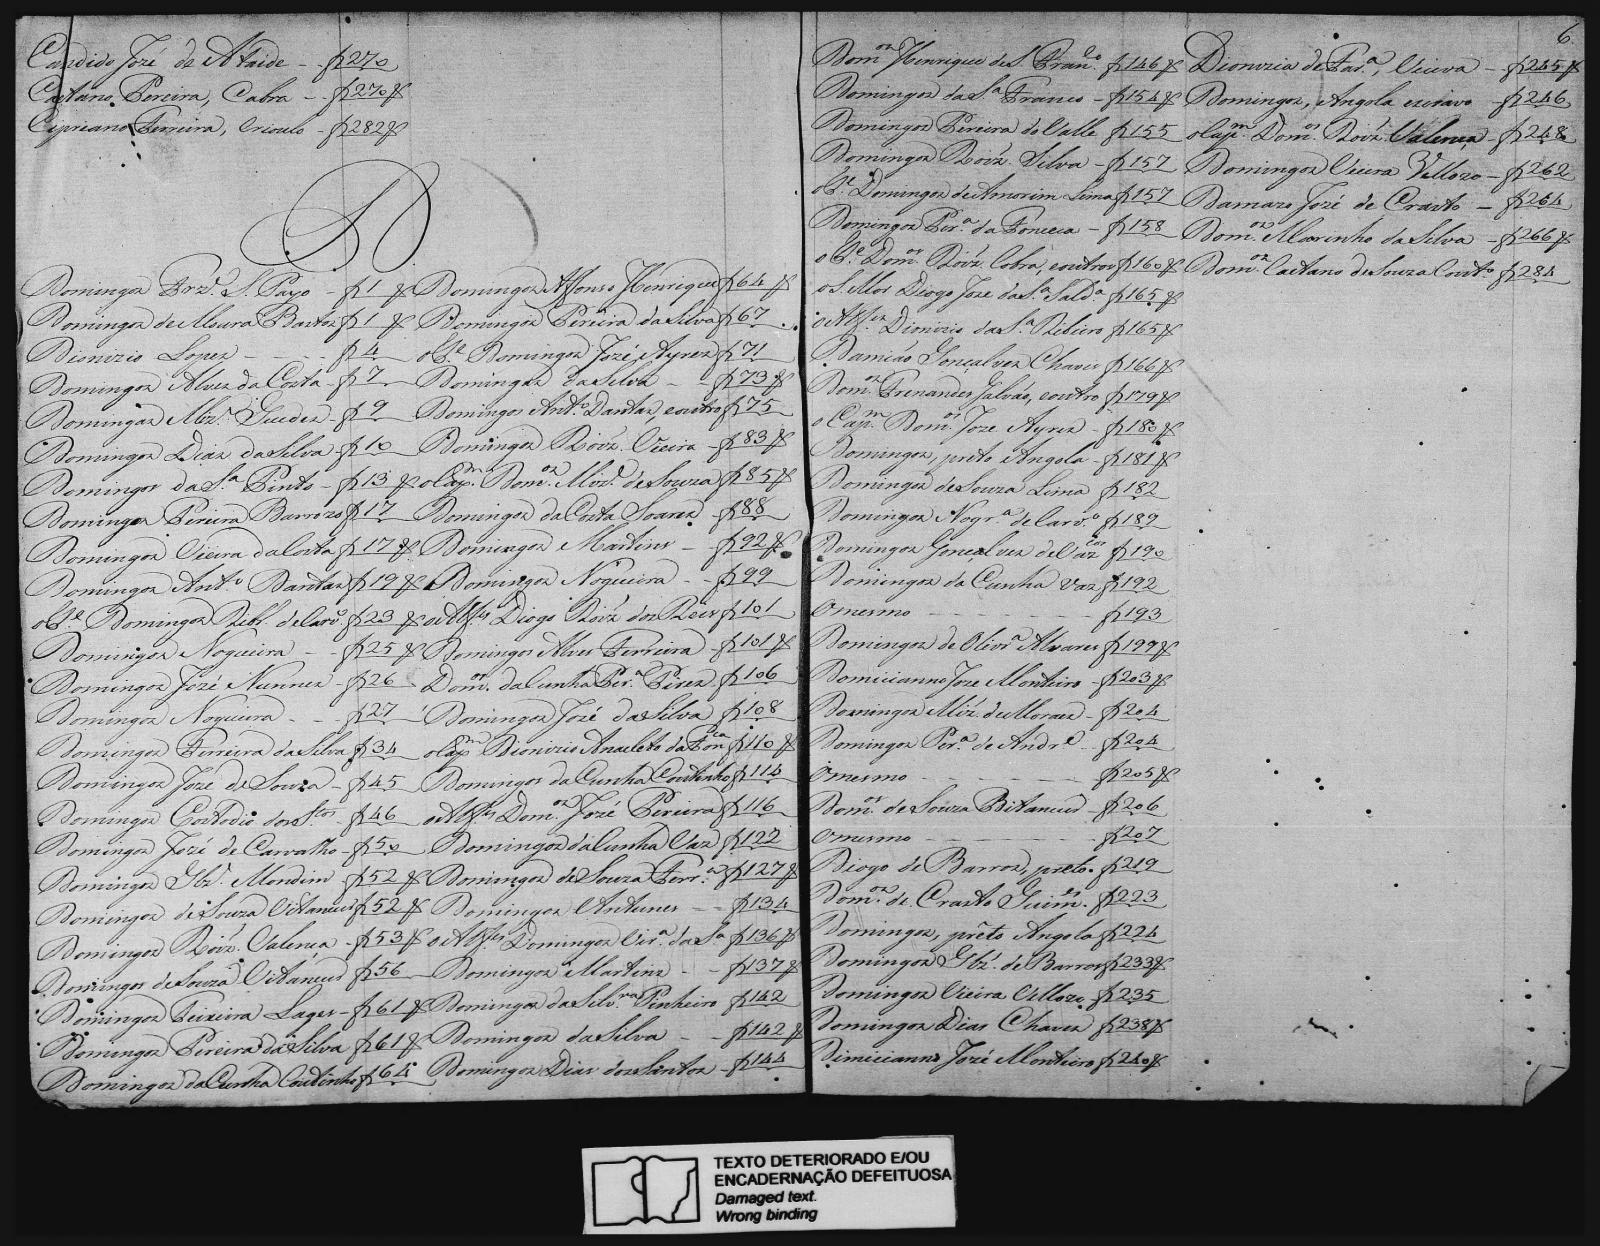 Candido José de Ataide - f 270
Caetano Pereira, Cabra - f 270 ₰
Cipriano Ferreira, Crioulo - f 282 ₰
D
Domingos Frz.' S. Payo - f 1 ₰
Domingos de Moura Bastos f 1 ₰
Dionizio Lopez - - - f 4
Domingos Alves da Costa - f 7
Domingos Miz.' Guedes - f 9
Domingos Dias da Silva - f 10
Domingos da S.ª Pinto - f 13 ₰
Domingos Pereira Barrozo f 17
Domingos Vieira da Costa f 17 ₰
Domingos Ant.º Dantas f 19 ₰
o P.e Domingos Ribr. de Carv.º f 23 ₰
Domingos Nogueira - - f 25 ₰
Domingos José Nunnes - f 26
Domingos Nogueira - - f 27
Domingos Ferreira da Silva f 34
Domingos José de Souza - f 45
Domingos Costodio dos S.tos - f 46
Domingos José de Carvalho - f 50
Domingos Glz.' Mondim - f 52 ₰
Domingos de Souza Vitancus f 52 ₰
Domingos Roiz. Valença - f 53 ₰
Domingos de Souza Vitancus f 56
Domingos Teixeira Lages - f 61 ₰
Domingos Pereira da Silva f 61 ₰
Domingos da Cunha Coutinho f 64
Domingos Affonso Henriques f 64 ₰
Domingos Pereira da Silva f 67
o P.e Domingos José Ayres f 71
Domingos da Silva - - f 73 ₰
Domingos Ant.º Dantas, e outro f 75
Domingos Roiz. Vieira - f 83 ₰
o Cap.m Dom.os Miz.' de Souza f 85 ₰
Domingos da Costa Soares - f 88
Domingos Martins - - f 92 ₰
Domingos Nogueira - - f 99
o Alfs. Diogo Roiz dos Reis f 101
Domingos Alves Ferreira - f 101 ₰
Dom.os da Cunha Per.ª Pires f 106
Domingos José da Silva f 108
o Cap.m Dionizio Anacleto da Fon.ca f 110 ₰
Domingos da Cunha Coutinho f 114
o Alfs. Dom.os José Pereira f 116
Domingos da Cunha Vaz f 122
Domingos de Souza Ferr.ª f 127 ₰
Domingos Antunes - - f 134
o Alfs. Domingos Vir.ª da S.ª f 136 ₰
Domingos Martins - - f 137 ₰
Domingos da Silv.ra Pinheiro f 142
Domingos da Silva - - f 142 ₰
Domingos Dias dos Santos - f 144
6
Dom.os Henrique de S. Fran.co f 146 ₰
Domingos da S.ª Franco - f 154 ₰
Domingos Pereira do Valle f 155
Domingos Roiz. Silva - f 157
o P.e Domingos de Amorim Lima f 157
Domingos Fer.ª da Fonceca - f 158
o P.e Dom.os Roiz Cobra, e outros f 160 ₰
o S. Mor Diogo José da S.ª Sald.ª f 165 ₰
o Alfs. Dionizio da S.ª Ribeiro f 165 ₰
Damião Gonçalves Chaves f 166 ₰
Dom.os Frenandes Galvão, e outro f 179 ₰
o Cap.m Dom.os Joze Ayres - f 180 ₰
Domingos, preto Angola - f 181 ₰
Domingos de Souza Lima f 182
Domingos Nogr.ª de Carv.º f 189
Domingos Gonçalves de Vaz.los f 190
Domingos da Cunha Vaz f 192
O mesmo - - - f 193
Domingos de Olivr.ª Alvares f 199 ₰
Domicianno Joze Monteiro - f 203 ₰
Domingos Miz. de Moraes - f 204
Domingos Per.ª de Andr.e - f 204
O mesmo - - - f 205 ₰
Dom.os de Souza Bitancus - f 206
O mesmo - - - f 207
Diogo de Barros, preto - f 219
Dom.os de Crasto Guim.es - f 223
Domingos, preto Angola f 224
Domingos Glz.' de Barros f 233 ₰
Domingos Vieira Vellozo - f 235
Domingos Dias Chaves f 238 ₰
Dimicianno José Monteiro f 240 ₰
Dionizia de Far.ª, Viuva - f 245 ₰
Domingos, Angola escravo - f 246
o Cap.m Dom.os Roiz.' Valença - f 248
Domingos Vieira Vellozo - f 262
Damazo José de Crasto - f 264
Dom.os Marinho da Silva - f 266 ₰
Dom.os Caetano de Souza Cout.º f 284
TEXTO DETERIORADO E/OU
ENCADERNAÇÃO DEFEITUOSA
Damaged text.
Wrong binding